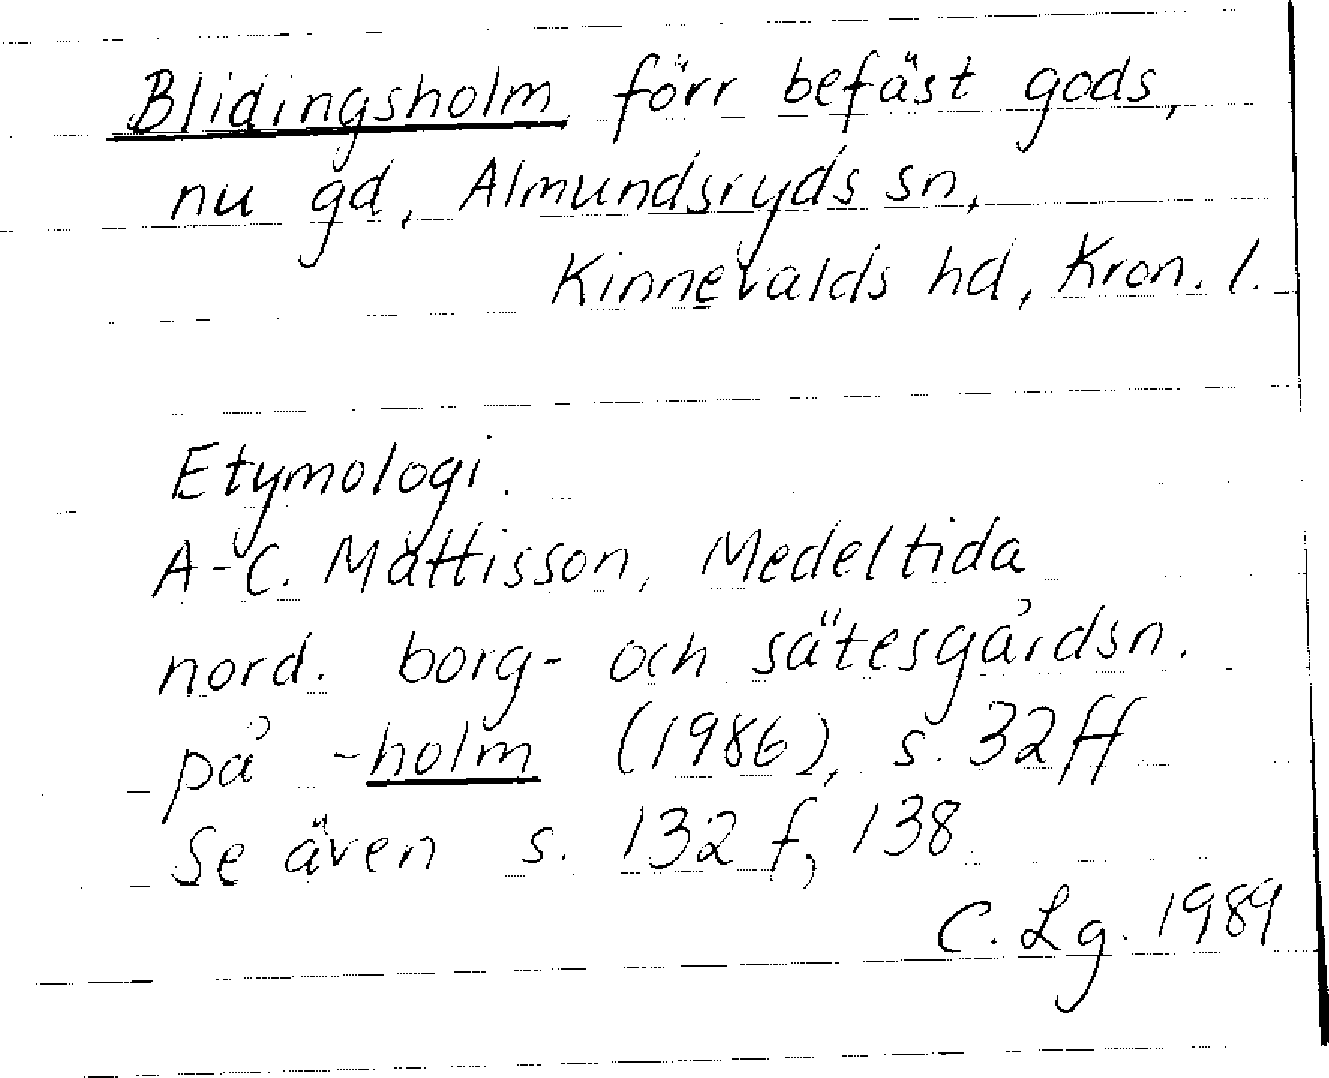 Blidingsholm förr befäst gods,
nu gd, Almundsryds sn,
Kinnevalds hd, Kron. l.
Etymologi.
A-C. Mattisson, Medeltida
nord. borg- och sätesgårdsn.
på -holm (1986), s. 32 ff
Se även s. 132 f, 138
C. Lg. 1989